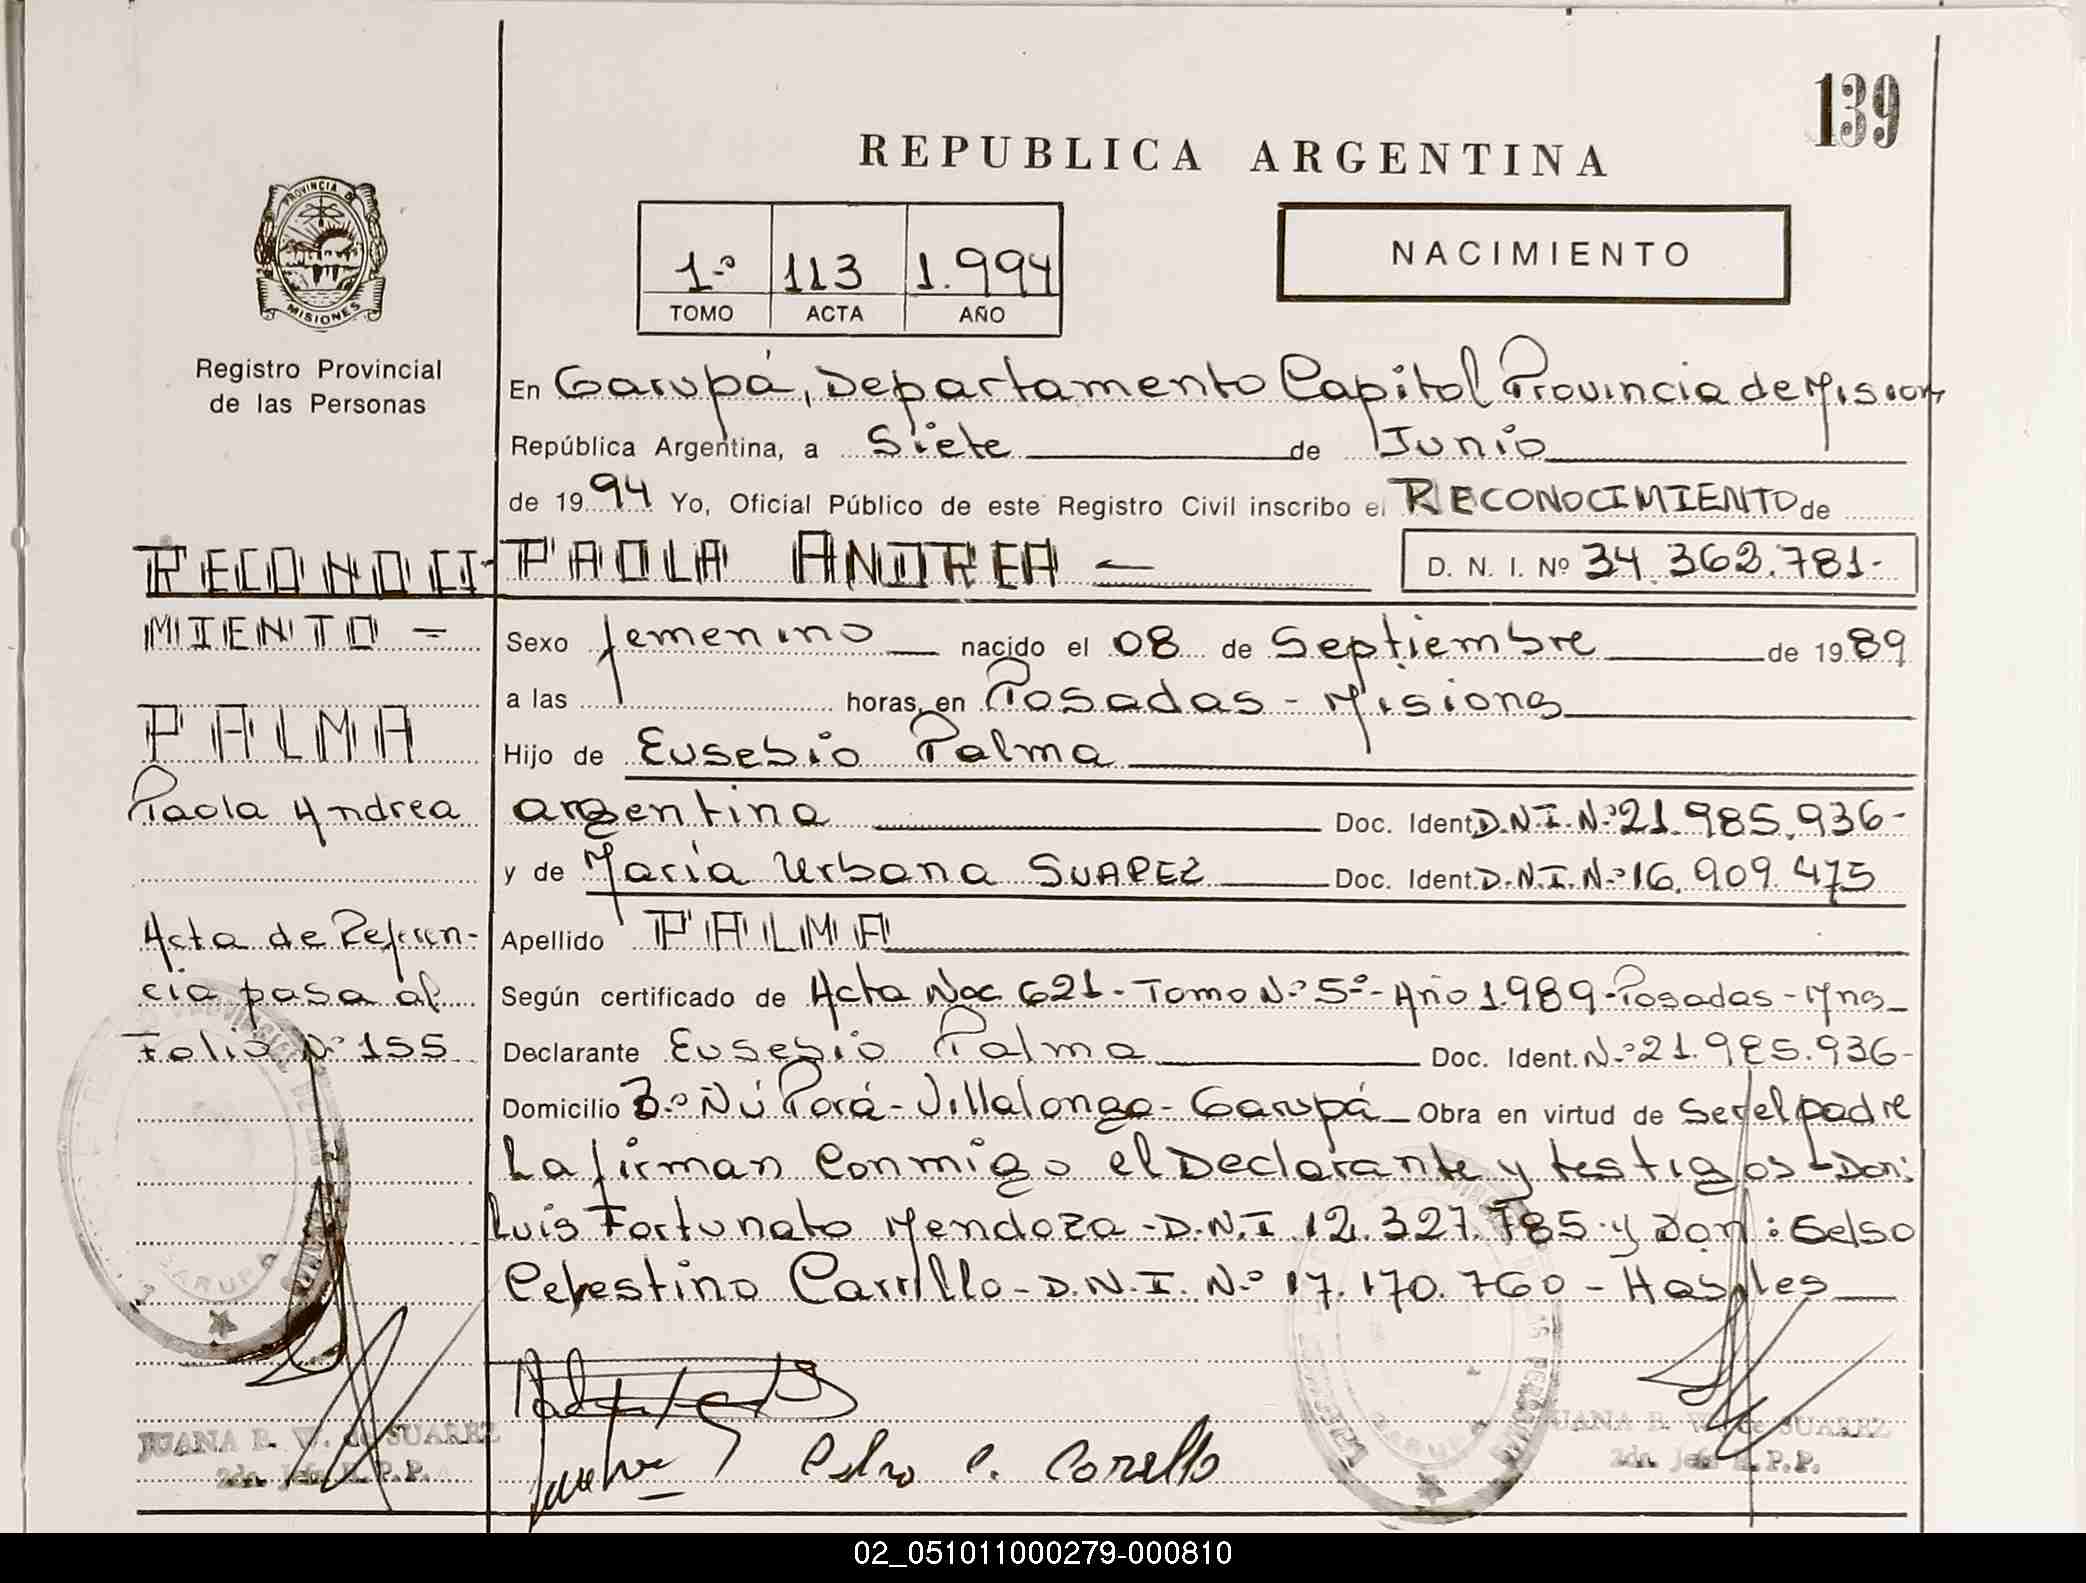 139
REPUBLICA ARGENTINA
PROVINCIA DE
MISIONES
Registro Provincial
de las Personas
1.º 113 1.994
TOMO ACTA AÑO
NACIMIENTO
En Garupá, Departamento Capital Provincia de Mision
República Argentina, a Siete de Junio
de 1994 Yo, Oficial Público de este Registro Civil inscribo el RECONOCIMIENTO de
PAOLA ANDREA D. N. I. Nº 34.362.781-
Sexo femenino nacido el 08 de Septiembre de 1989
a las horas, en Posadas - Misiones
Hijo de Eusebio Palma
argentina Doc. Ident. D.N.I. Nº 21.985.936-
y de María Urbana SUAREZ Doc. Ident. D.N.I. Nº 16.909.475
Apellido PALMA
Según certificado de Acta Nac 621 - Tomo Nº 5º - Año 1.989 - Posadas - Mns
Declarante Eusebio Palma Doc. Ident. Nº 21.985.936-
Domicilio Bº Ñú Porá - Villalonga - Garupá Obra en virtud de ser el padre
La firman conmigo el Declarante y testigos - Don:
Luis Fortunato Mendoza - D.N.I 12.327.785 y Don: Celso
Celestino Carrillo - D.N.I. Nº 17.170.760 - Hábiles
RECONOCI-
MIENTO -
PALMA
Paola Andrea
Acta de Referen-
cia pasa al
Folio Nº 155
GARUPA
JUANA B. V. de SUAREZ
2da. Jefa R.P.P.
GARUPA
JUANA B. V. de SUAREZ
2da. Jefa R.P.P.
02_051011000279-000810